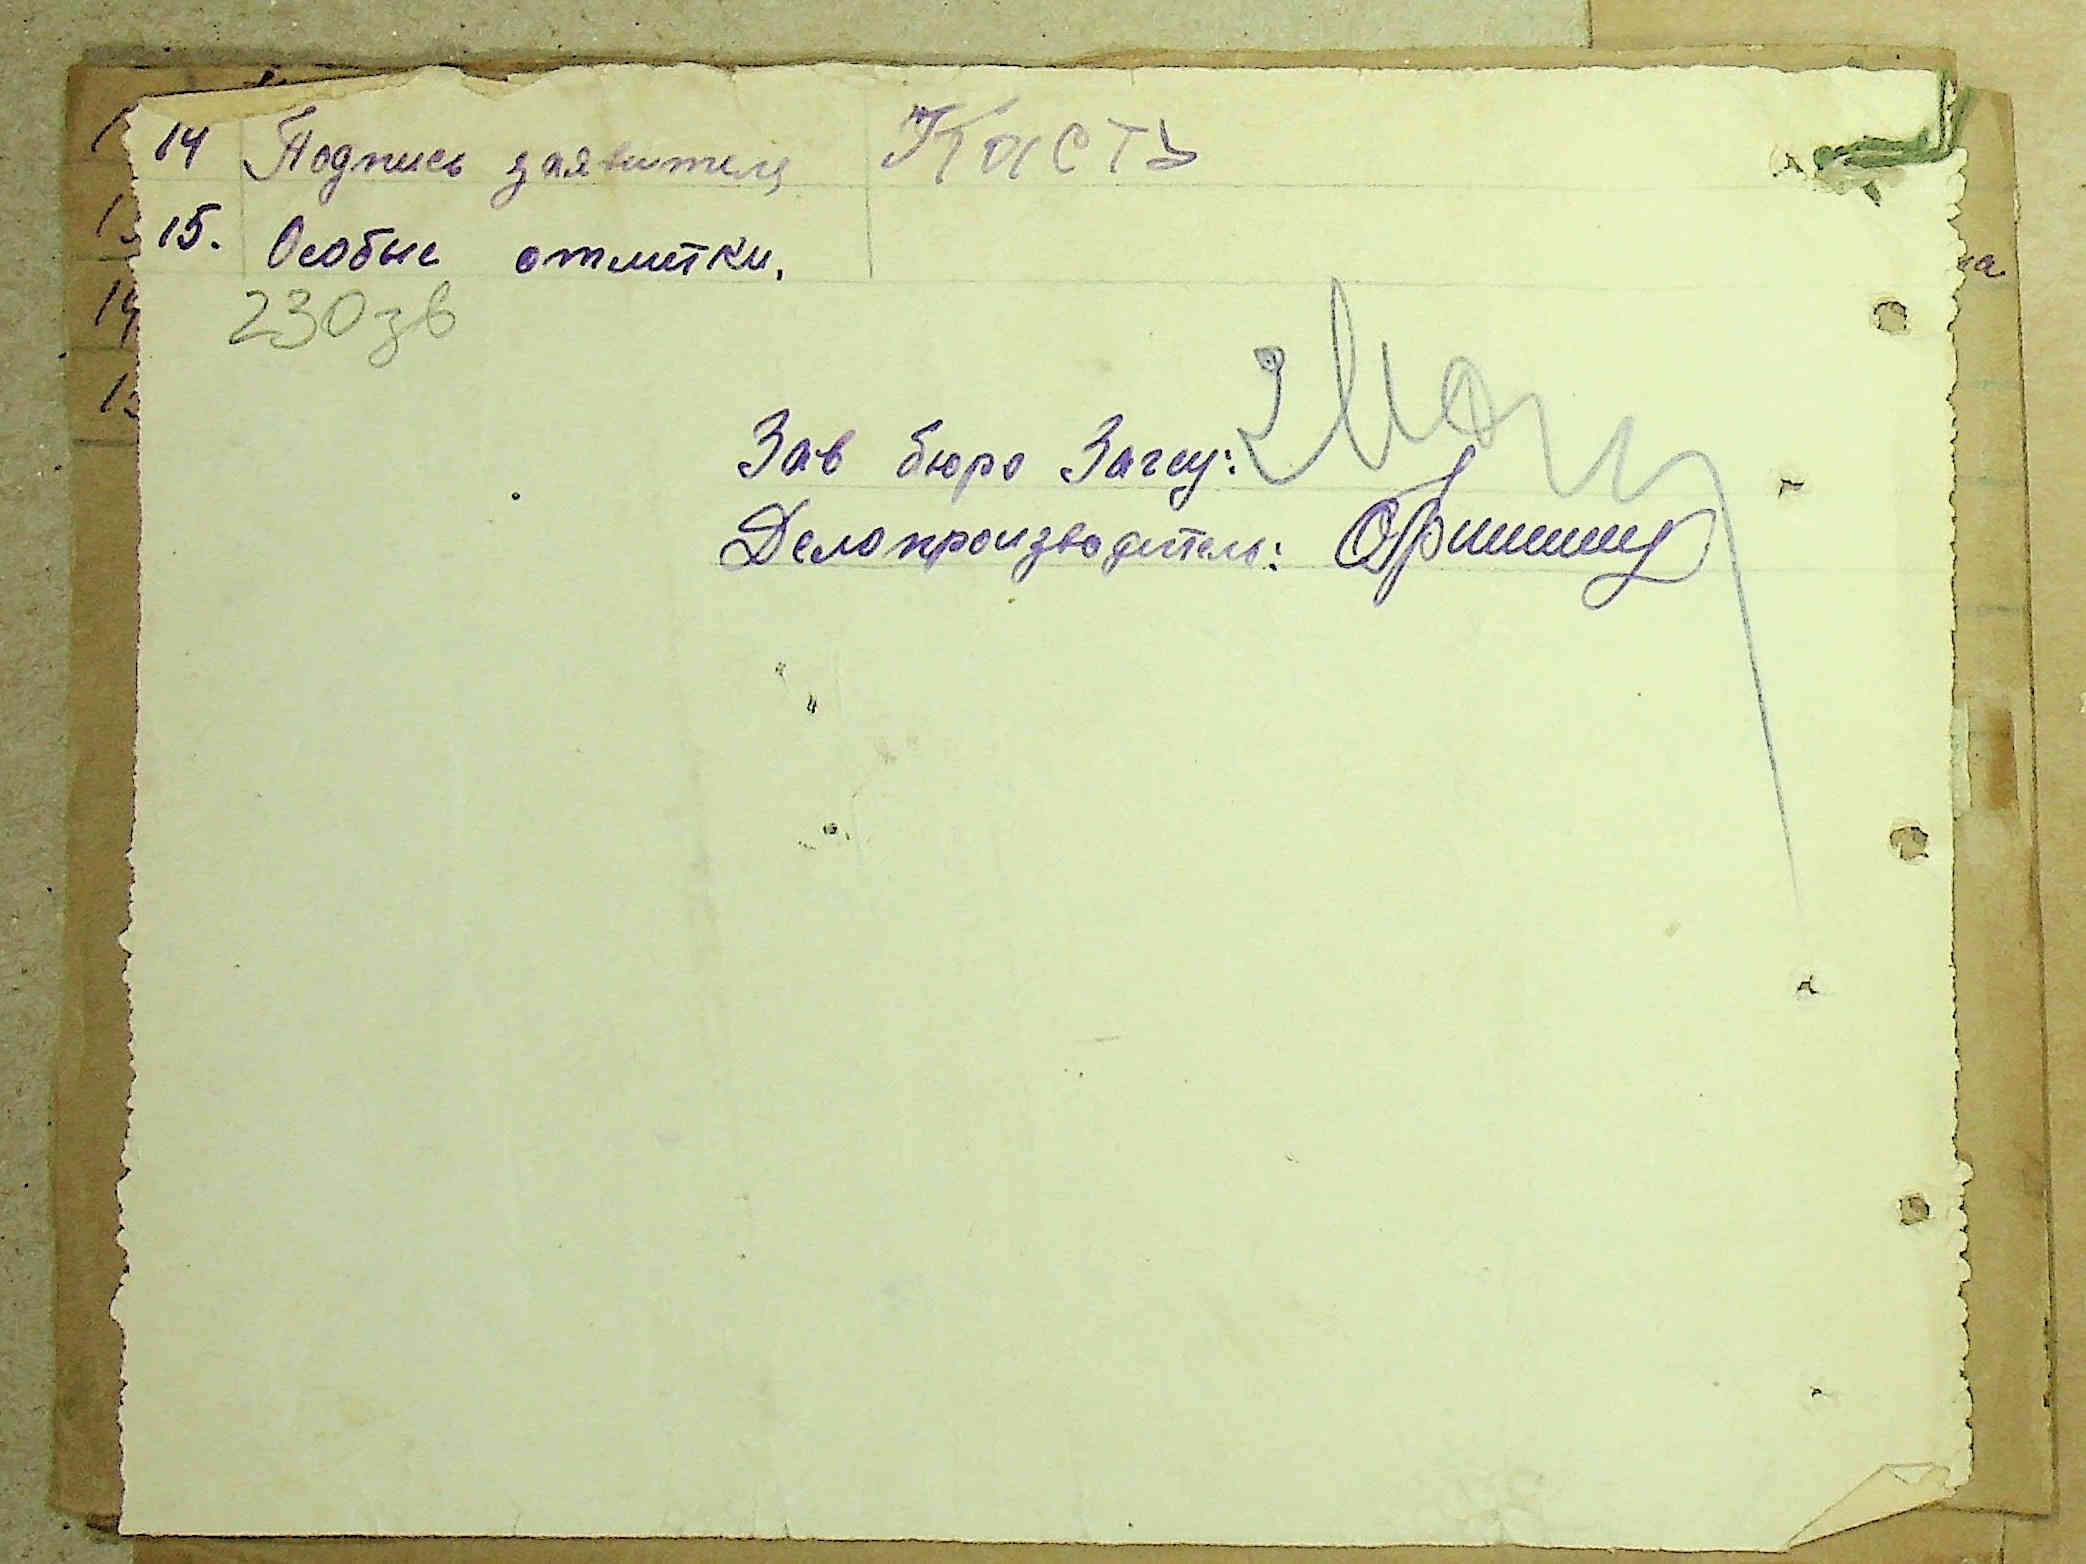 14 Подпись заявителя Касть
15. Особые отметки.
230зв
Зав бюро Загсу:
Делопроизводитель: